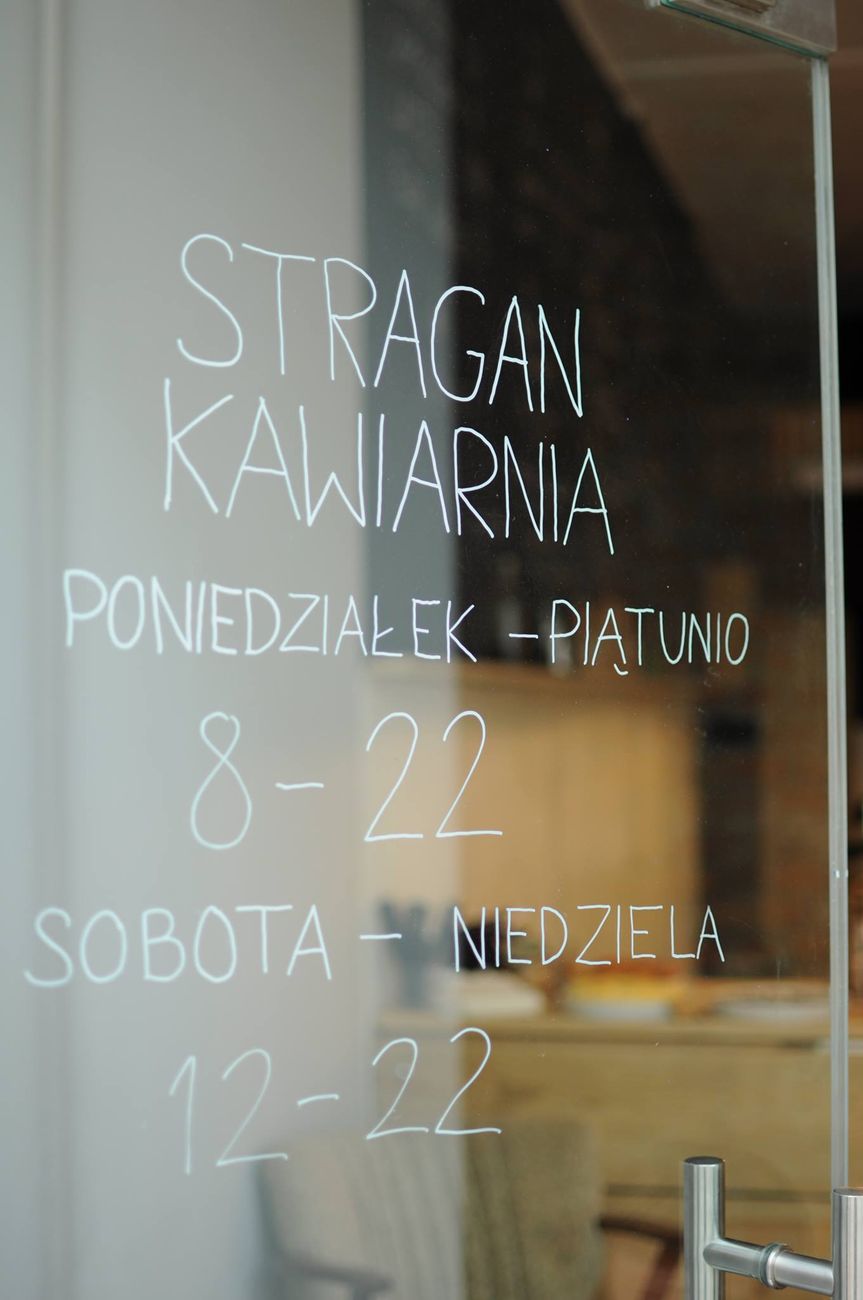 STRAGAN
KAWIARNIA
PONIEDZIAŁEK - PIĄTUNIO
8 - 22
SOBOTA - NIEDZIELA
12 - 22